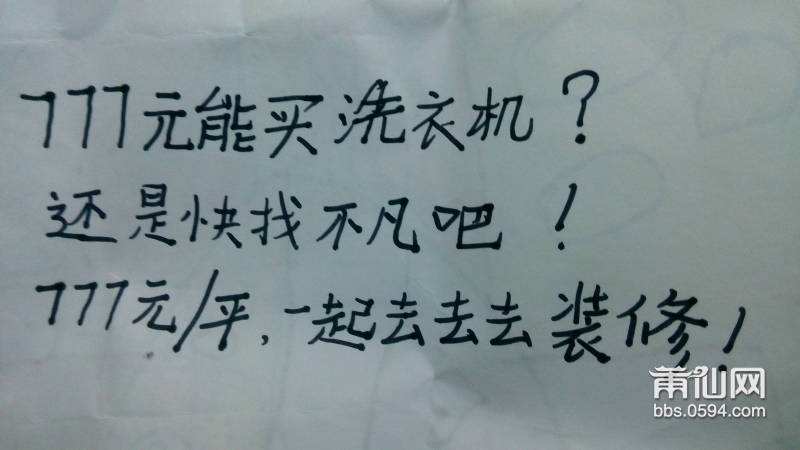 777元能买洗衣机？
还是快找不凡吧！
777元/平，一起去去去装修！
莆仙网
bbs.0594.com